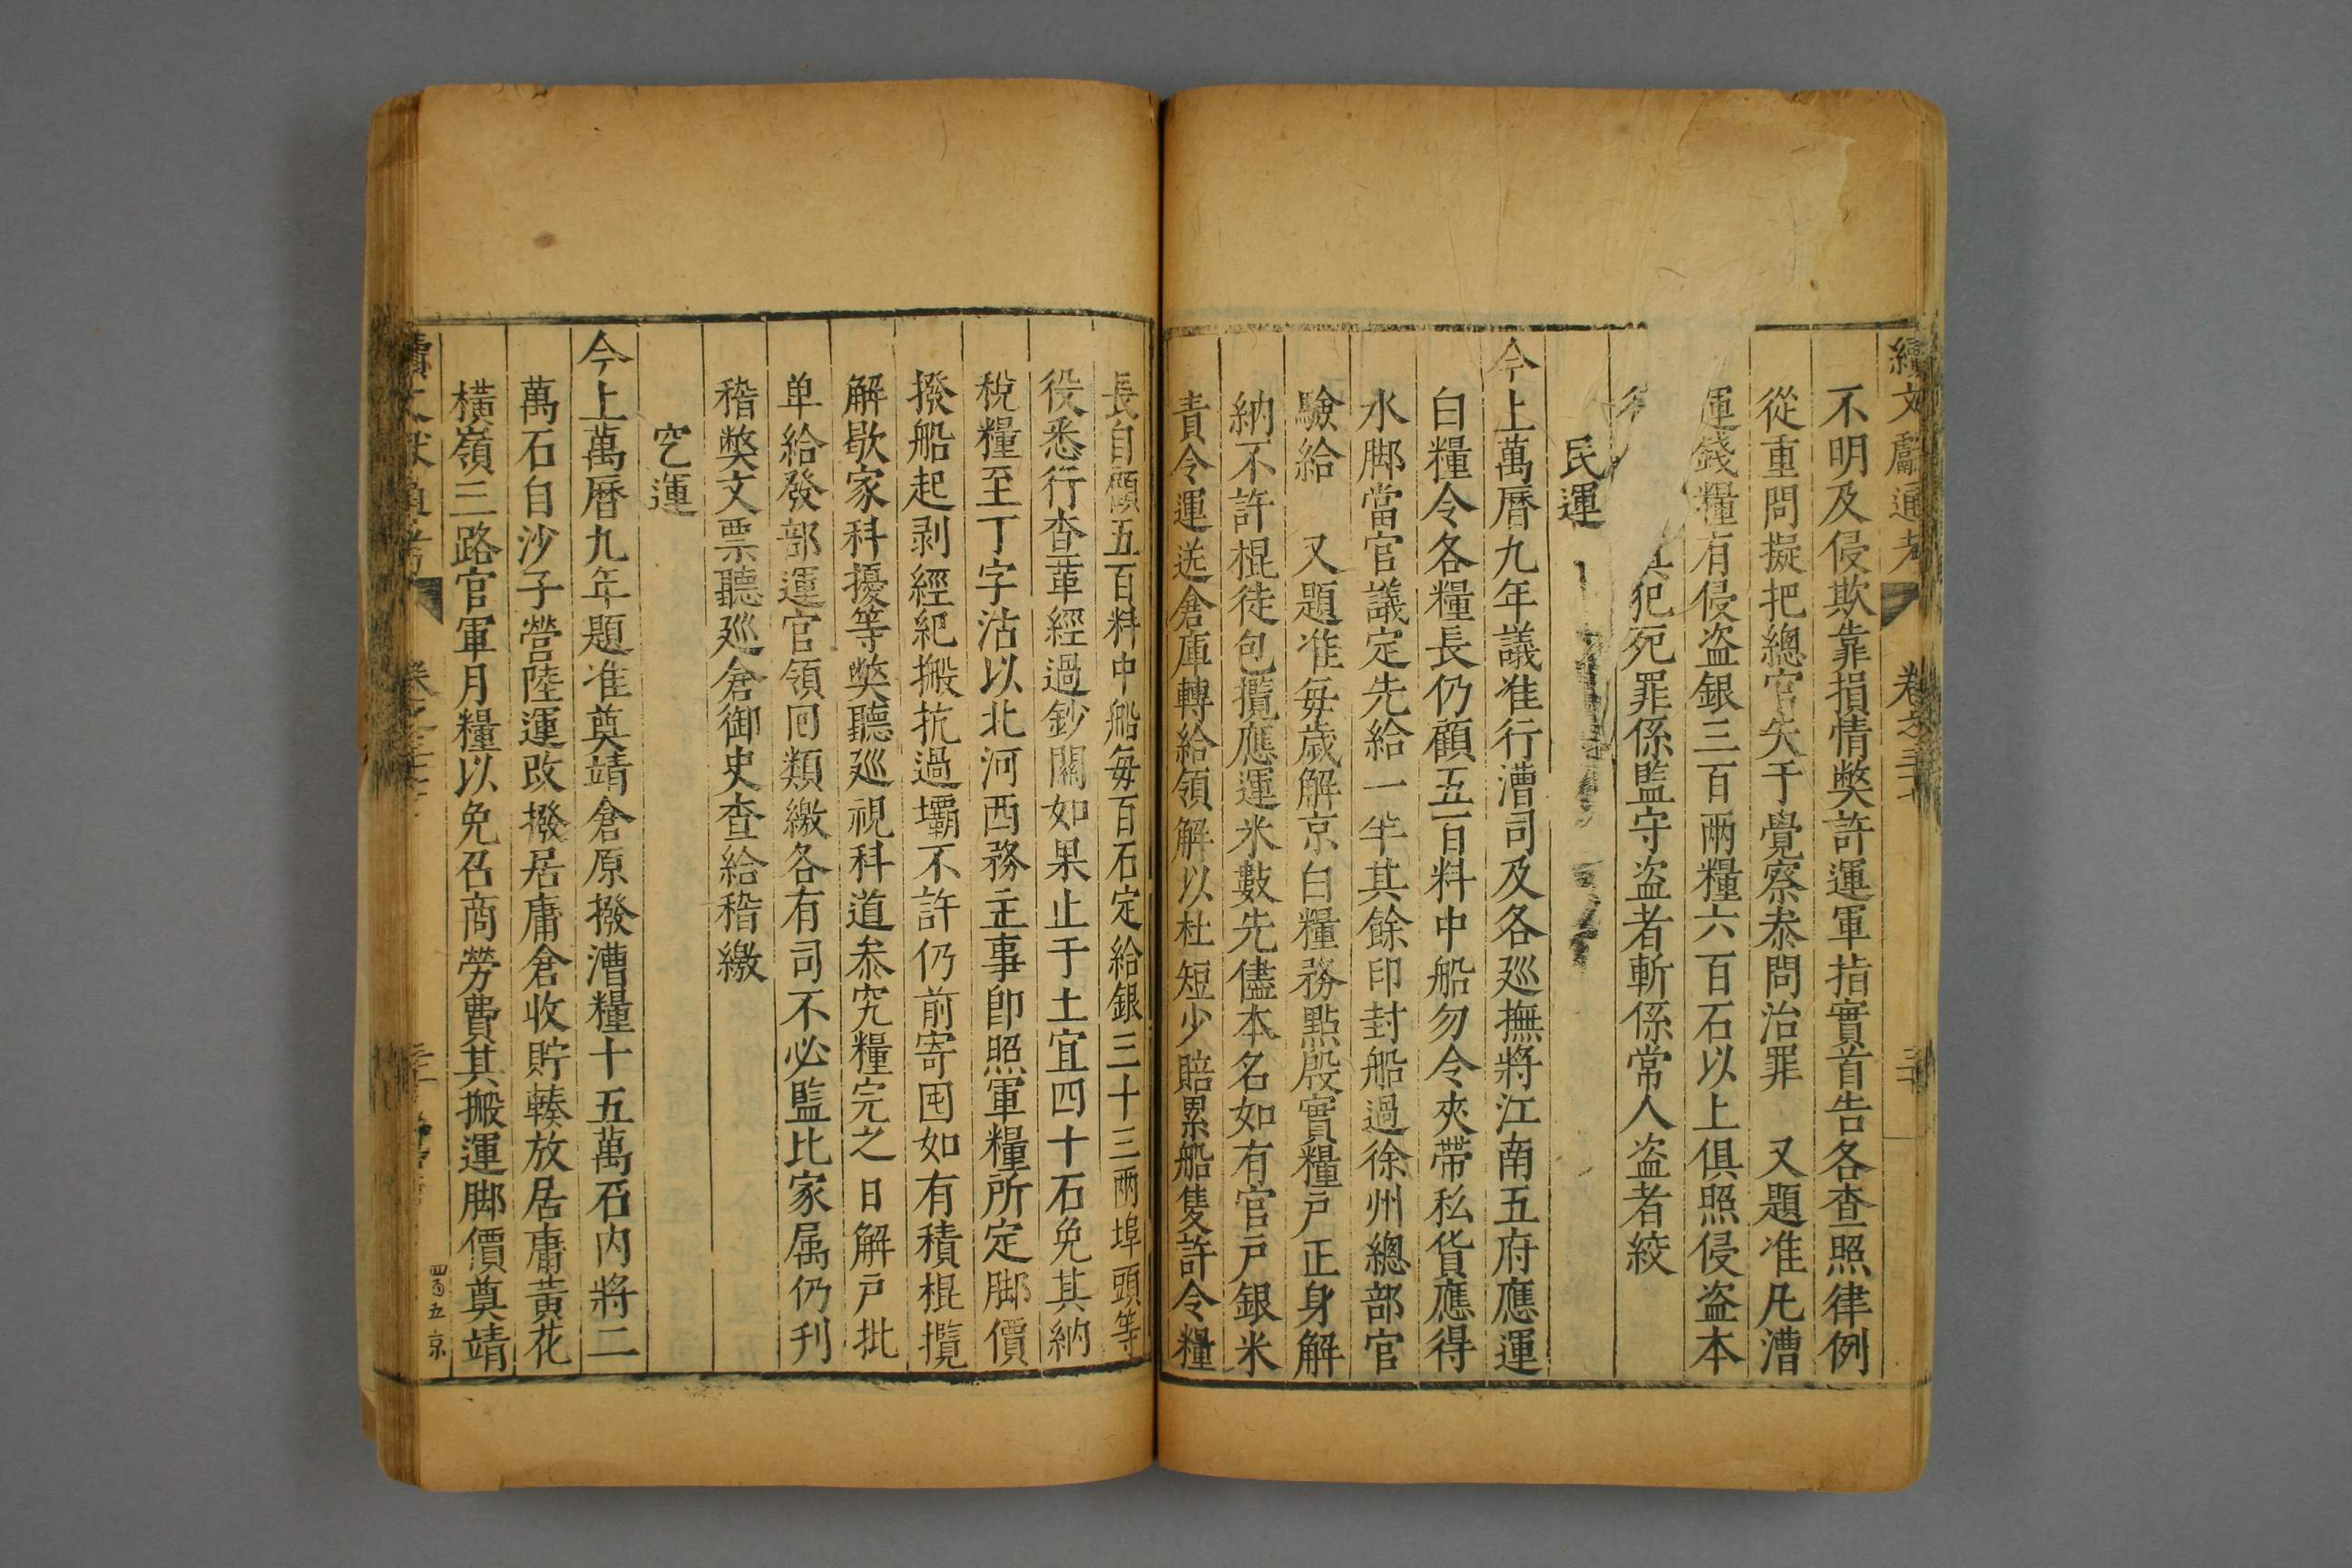 續文獻通考 卷之三十七
不明及侵欺靠損情獘許運軍指實首告各查照律例
從重問擬把總官失于覺察叅問治罪　又題准凡漕
運錢糧有侵盗銀三百兩糧六百石以上俱照侵盗本
犯死罪係監守盗者斬係常人盗者絞
民運
今上萬曆九年議准行漕司及各巡撫將江南五府應運
白糧令各糧長仍顧五百料中船勿令夾帶私貨應得
水脚當官議定先給一半其餘印封船過徐州總部官
驗給　又題准每歲解京白糧務點殷實糧戶正身解
納不許棍徒包攬應運米數先儘本名如有官戶銀米
責令運送倉庫轉給領解以杜短少賠累船隻許令糧
長自顧五百料中船每百石定給銀三十三兩埠頭等
役悉行查革經過鈔關如果止于土宜四十石免其納
稅糧至丁字沽以北河西務主事卽照軍糧所定脚價
撥船起剥經紀搬抗過壩不許仍前寄囤如有積棍攬
解歇家科擾等獘聽巡視科道叅究糧完之日解戶批
单給發部運官領囘類繳各有司不必監比家属仍刊
稽獘文票聽巡倉御史查給稽繳
空運
今上萬曆九年題准奠靖倉原撥漕糧十五萬石内將二
萬石自沙子營陸運改撥居庸倉收貯輳放居庸黃花
橫嶺三路官軍月糧以免召商勞費其搬運脚價奠靖